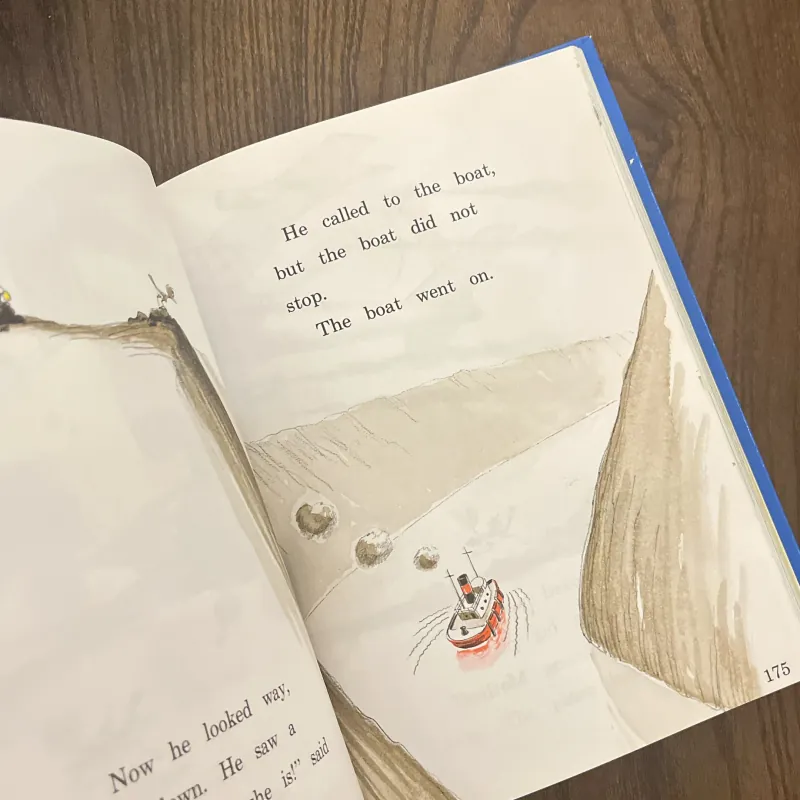 Now he looked way,
down. He saw a
she is!" said
He called to the boat,
but the boat did not
stop.
The boat went on.
175